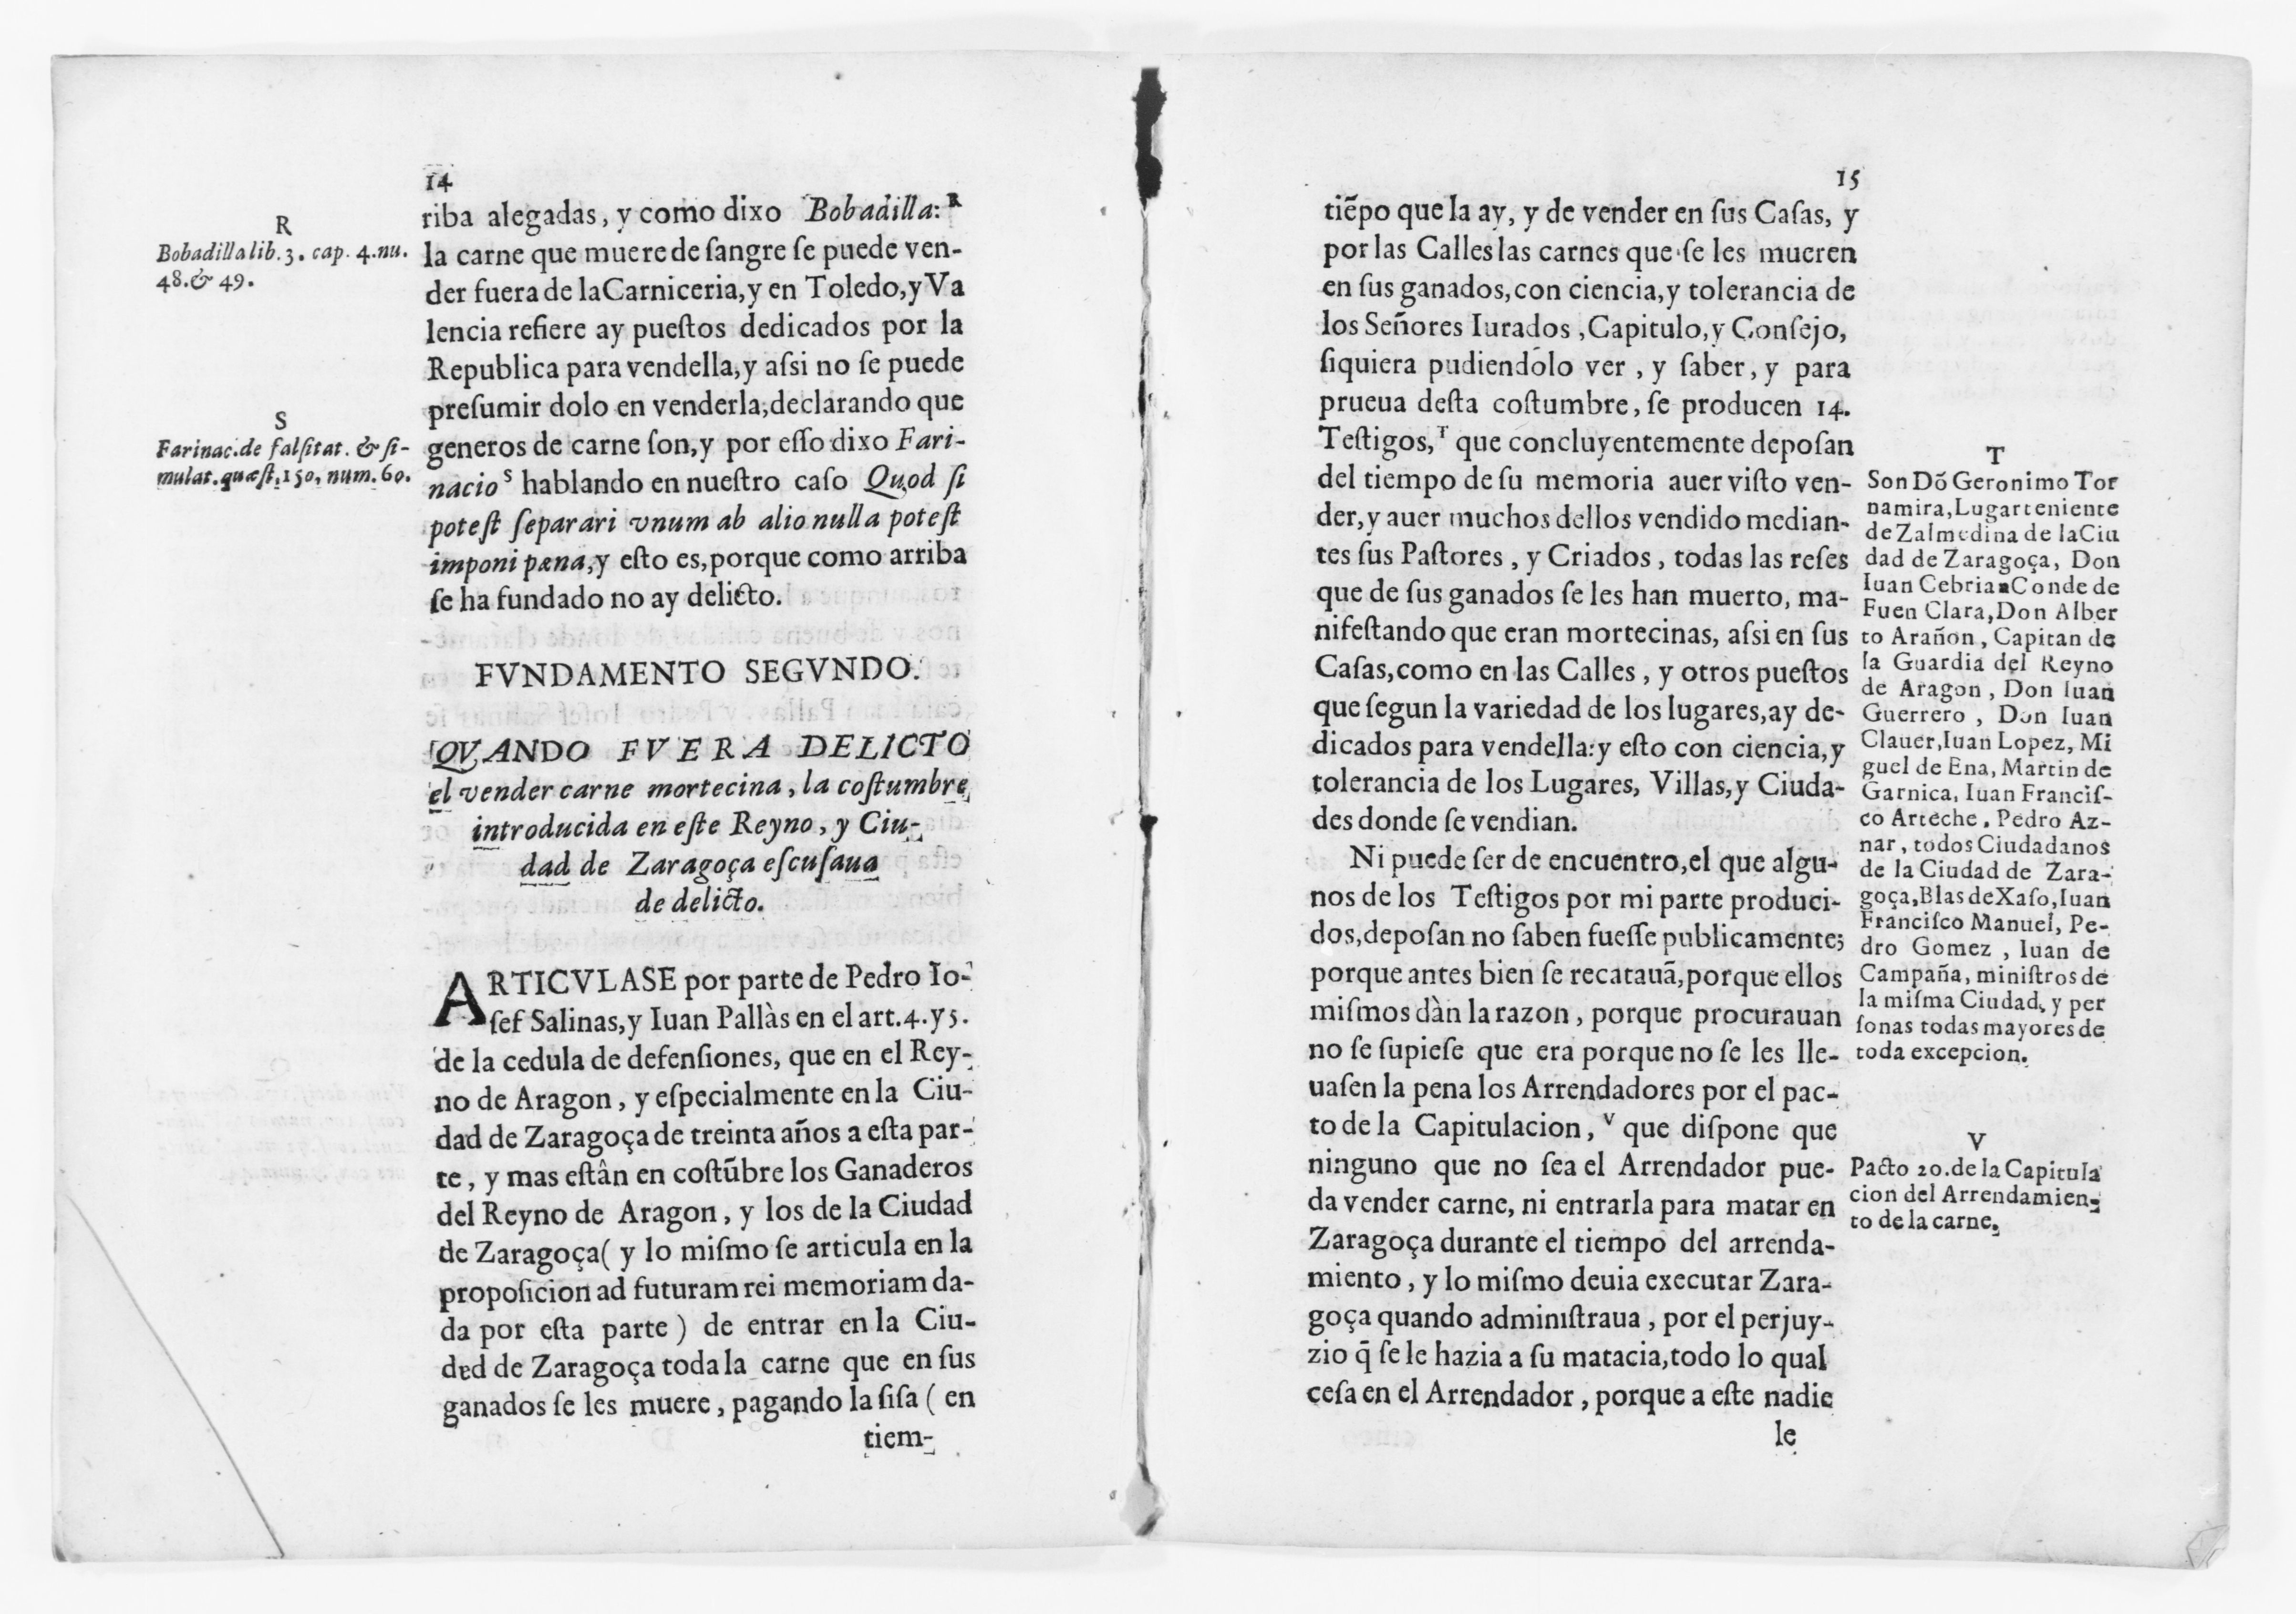 14
riba alegadas, y como dixo Bobadilla: R
la carne que muere de ſangre ſe puede ven-
der fuera de la Carniceria, y en Toledo, y Va
lencia refiere ay pueſtos dedicados por la
Republica para vendella, y aſsi no ſe puede
preſumir dolo en venderla, declarando que
generos de carne ſon, y por eſſo dixo Fari-
nacio S hablando en nueſtro caſo Quod ſi
poteſt ſeparari vnum ab alio nulla poteſt
imponi pæna, y eſto es, porque como arriba
ſe ha fundado no ay delicto.
R
Bobadilla lib. 3. cap. 4. nu.
48. & 49.
S
Farinac. de falſitat. & ſi-
mulat. quæſt. 150, num. 60.
FVNDAMENTO SEGVNDO.
QVANDO FVERA DELICTO
el vender carne mortecina, la coſtumbre
introducida en eſte Reyno, y Ciu-
dad de Zaragoça eſcuſaua
de delicto.
ARTICVLASE por parte de Pedro Io-
ſef Salinas, y Iuan Pallàs en el art. 4. y 5.
de la cedula de defenſiones, que en el Rey-
no de Aragon, y eſpecialmente en la Ciu-
dad de Zaragoça de treinta años a eſta par-
te, y mas eſtân en coſtūbre los Ganaderos
del Reyno de Aragon, y los de la Ciudad
de Zaragoça ( y lo miſmo ſe articula en la
propoſicion ad futuram rei memoriam da-
da por eſta parte ) de entrar en la Ciu-
ded de Zaragoça toda la carne que en ſus
ganados ſe les muere, pagando la ſiſa ( en
tiem-
15
tiẽpo que la ay, y de vender en ſus Caſas, y
por las Calles las carnes que ſe les mueren
en ſus ganados, con ciencia, y tolerancia de
los Señores Iurados, Capitulo, y Conſejo,
ſiquiera pudiendolo ver, y ſaber, y para
prueua deſta coſtumbre, ſe producen 14.
Teſtigos, T que concluyentemente depoſan
del tiempo de ſu memoria auer viſto ven-
der, y auer muchos dellos vendido median-
tes ſus Paſtores, y Criados, todas las reſes
que de ſus ganados ſe les han muerto, ma-
nifeſtando que eran mortecinas, aſsi en ſus
Caſas, como en las Calles, y otros pueſtos
que ſegun la variedad de los lugares, ay de-
dicados para vendella: y eſto con ciencia, y
tolerancia de los Lugares, Villas, y Ciuda-
des donde ſe vendian.
Ni puede ſer de encuentro, el que algu-
nos de los Teſtigos por mi parte produci-
dos, depoſan no ſaben fueſſe publicamente;
porque antes bien ſe recatauã, porque ellos
miſmos dàn la razon, porque procurauan
no ſe ſupieſe que era porque no ſe les lle-
uaſen la pena los Arrendadores por el pac-
to de la Capitulacion, V que diſpone que
ninguno que no ſea el Arrendador pue-
da vender carne, ni entrarla para matar en
Zaragoça durante el tiempo del arrenda-
miento, y lo miſmo deuia executar Zara-
goça quando adminiſtraua, por el perjuy-
zio q̃ ſe le hazia a ſu matacia, todo lo qual
ceſa en el Arrendador, porque a eſte nadie
le
T
Son Dõ Geronimo Tor
namira, Lugarteniente
de Zalmedina de la Ciu
dad de Zaragoça, Don
Iuan Cebrian Conde de
Fuen Clara, Don Alber
to Arañon, Capitan de
la Guardia del Reyno
de Aragon, Don Iuan
Guerrero, Don Iuan
Clauer, Iuan Lopez, Mi
guel de Ena, Martin de
Garnica, Iuan Franciſ-
co Arteche, Pedro Az-
nar, todos Ciudadanos
de la Ciudad de Zara-
goça, Blas de Xaſo, Iuan
Franciſco Manuel, Pe-
dro Gomez, Iuan de
Campaña, miniſtros de
la miſma Ciudad, y per
ſonas todas mayores de
toda excepcion.
V
Pacto 20. de la Capitula
cion del Arrendamien-
to de la carne.